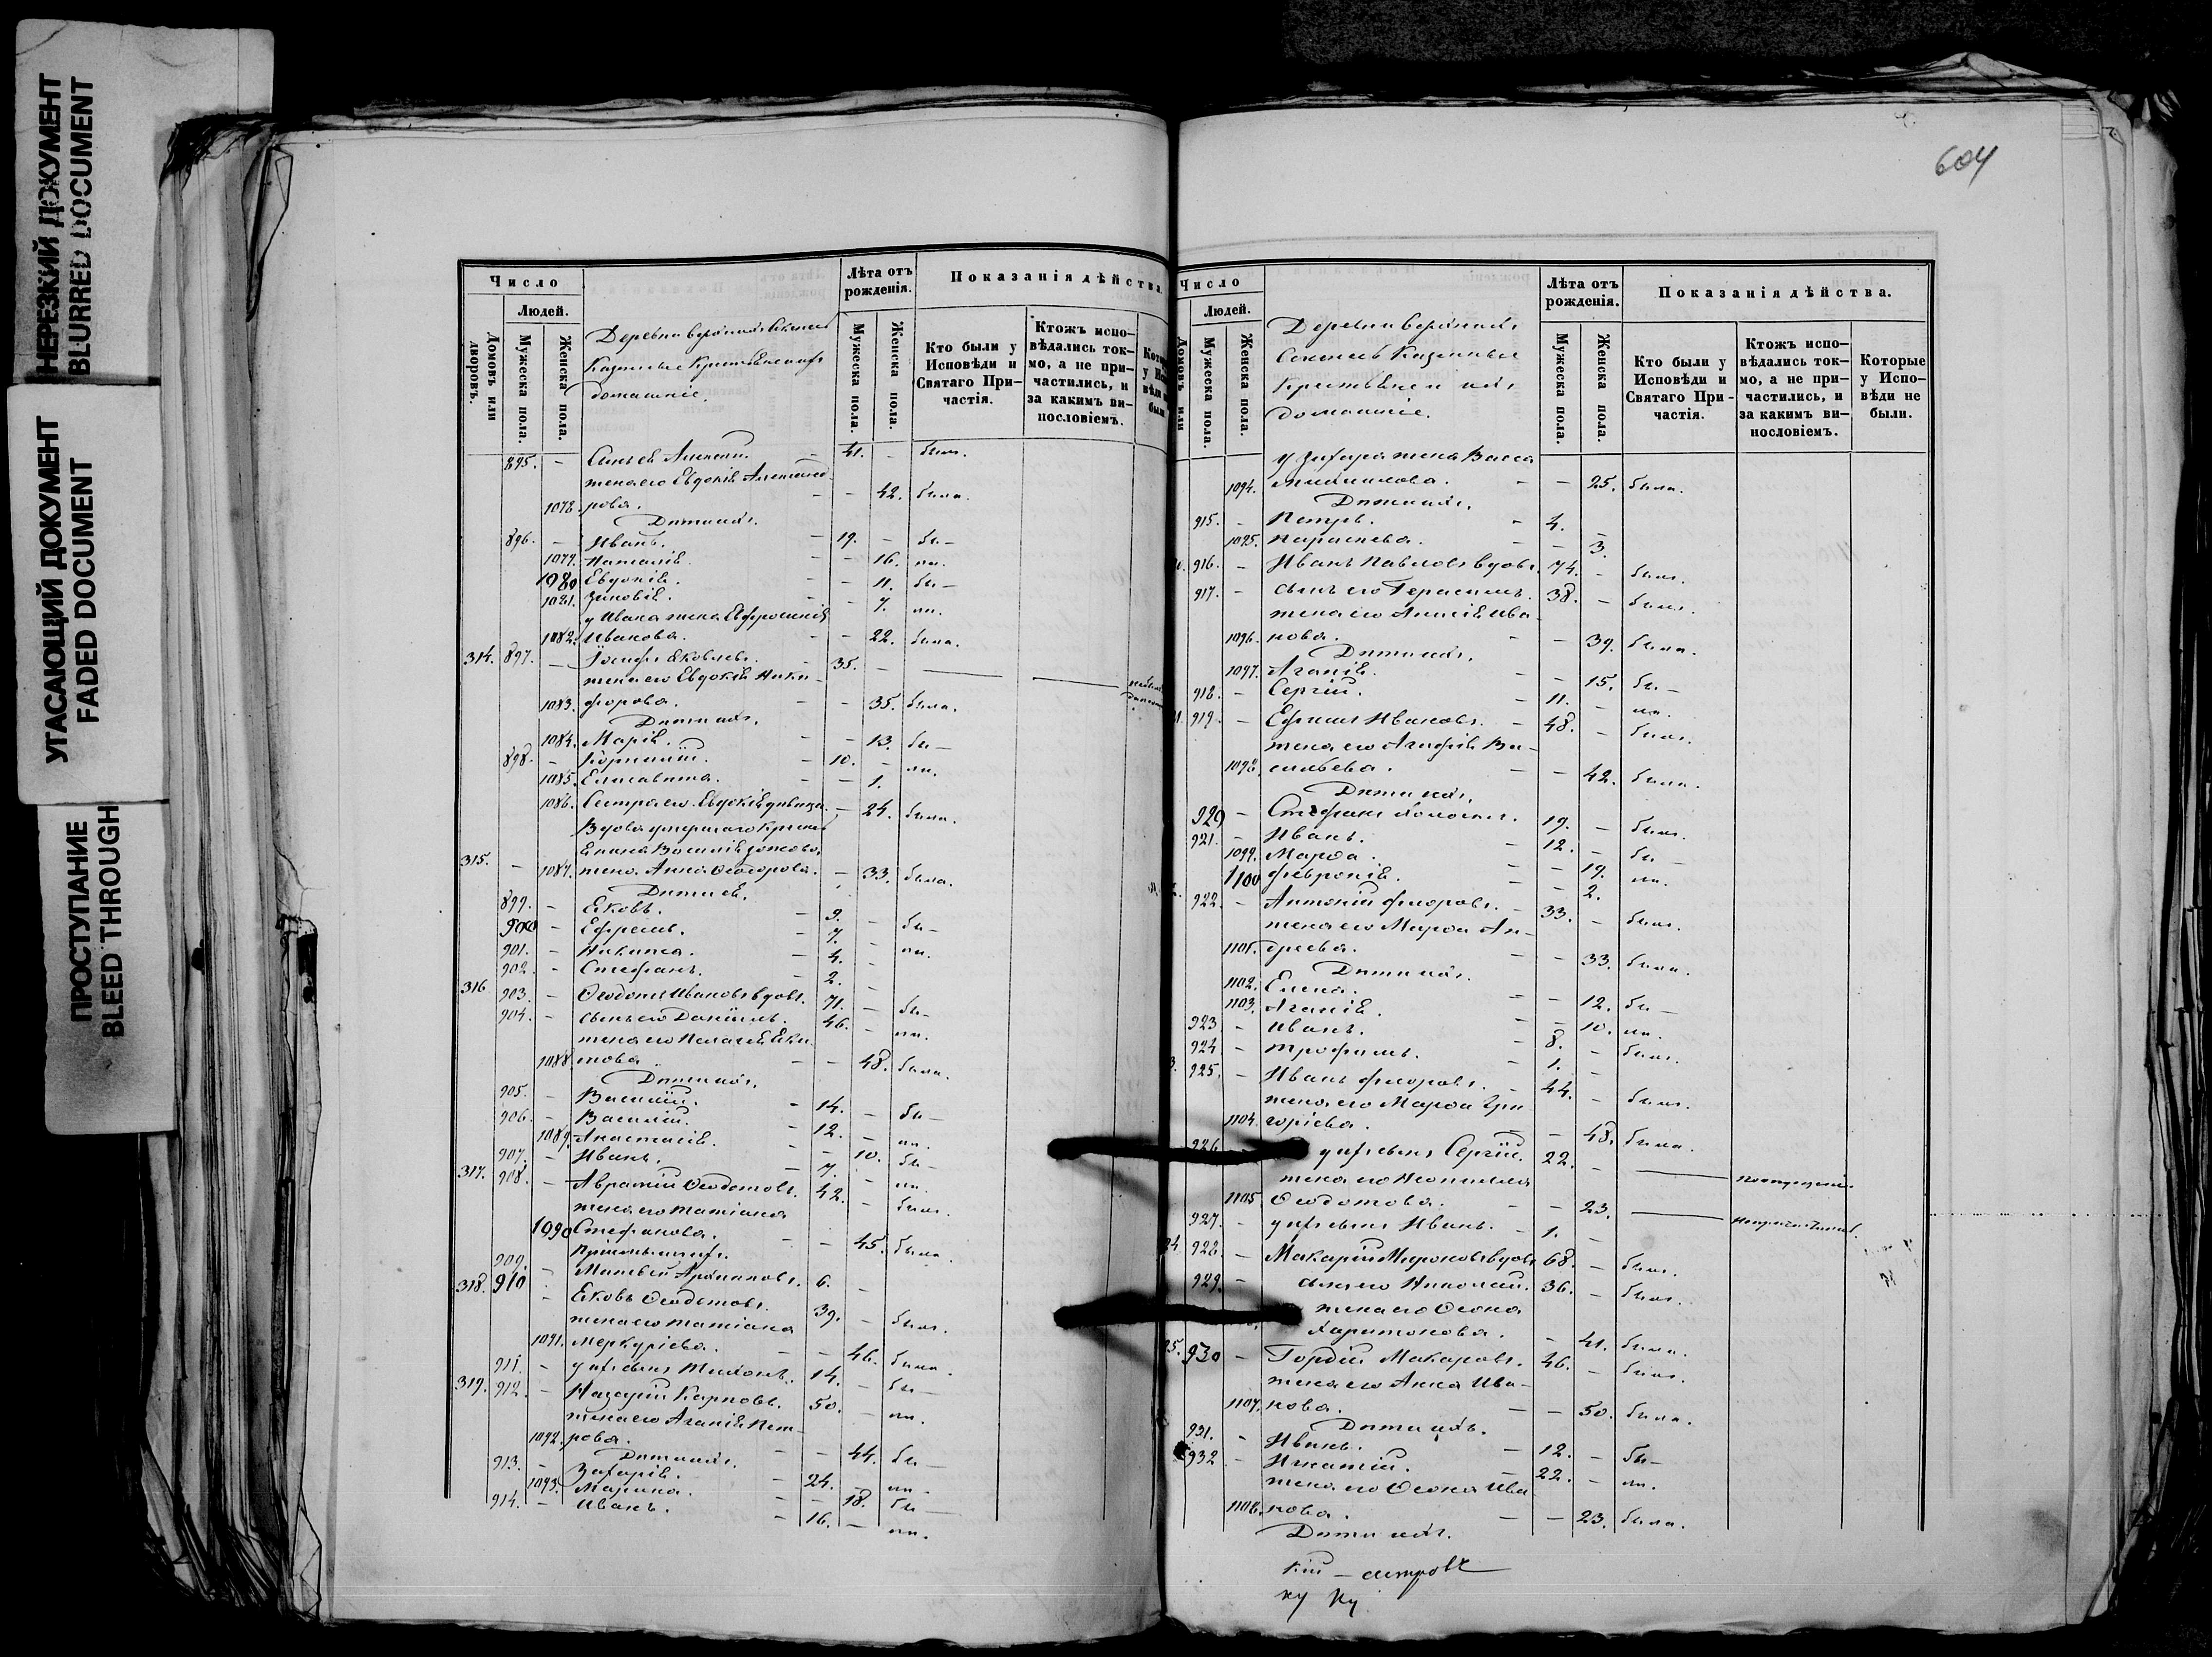 НЕРЕЗКИЙ ДОКУМЕНТ
BLURRED DOCUMENT
УГАСАЮЩИЙ ДОКУМЕНТ
FADED DOCUMENT
ПРОСТУПАНИЕ
BLEED THROUGH
Число
Людей.
Домовъ или дворовъ.
Мужеска пола.
Женска пола.
Деревни
домашніе.
Лѣта отъ рожденія.
Мужеска пола.
Женска пола.
Показанія дѣйства.
Кто были у Исповѣди и Святаго Причастія.
Ктожъ исповѣдались токмо, а не причастились, и за какимъ винословіемъ.
895. - Сынъ ев Алексѣй. - 41. - былъ.
жена его Евдокія Александ
1078. рова. - - 42. была.
Дѣти ихъ.
896. - Иванъ. - 19. - бы-
1079. Наталія. - - 16. ли.
1080 Евдокія. - - 11. бы-
1081. Зиновія. - - 7. ли.
у Ивана жена Евфросинія
1082. Иванова. - - 22. была.
314. 897. - Іосифъ Яковлевъ. - 35. -
жена его Евдокія Ники-
1083. форова. - - 35. была.
Дѣти ихъ.
1084. Марія. - - 13. бы-
898. - - 10. - ли.
1085. Елисавета. - - 1.
1086. Сестра его Евдокія дѣвица. - 24. была.
Вдова умершаго
315. - 1087. жена Анна Ѳеодорова. - 33. была.
Дѣти ея.
899. - Яковъ. - 9. - бы-
900 - Ефремъ. - 7. - ли.
901. - Никита. - 4. -
902. - Стефанъ. - 2. -
316 903. - Ѳеодотъ Ивановъ вдовъ. 71. - бы-
904. - сынъ его Даніилъ. 46. - ли.
жена его Пелагія Яки
1088 мова - - 48. была.
Дѣти ихъ.
905. - Василій. - 14. - бы-
906. - Василій. - 12. - ли.
1089. Анастасія. - - 10. бы-
907. - Иванъ. - 7. - ли.
317. 908. - Аврамій Ѳеодотовъ. 42. - былъ.
жена его Татіана
1090 Стефанова. - - 45. была.
Пріемышъ ихъ.
909. - Матвей 6. -
318. 910 - Яковъ Ѳеодотовъ. 39. - былъ.
жена его Татіана
1091. Меркуріева. - - 46. была.
911. - у ихъ сынъ Тихонъ. 14. - бы-
319. 912. - Назарій Карповъ. 50. - ли.
жена его Агапія Пет-
1092. рова. - - 44. бы-
Дѣти ихъ.
913. - Захарія. - 24. - ли.
1093. Марина. - - 18. бы-
914. - Иванъ. - 16. - ли.
604
Число
Людей.
Домовъ или
Мужеска пола.
Женска пола.
Деревни
домашніе.
Лѣта отъ рожденія.
Мужеска пола.
Женска пола.
Показанія дѣйства.
Кто были у Исповѣди и Святаго Причастія.
Ктожъ исповѣдались токмо, а не причастились, и за какимъ винословіемъ.
Которые у Исповѣди не были.
у Захара жена Васса
1094. Михайлова. - - 25. была.
Дѣти ихъ.
915. - Петръ. - 4. -
1095. Параскева. - - 3.
916. - Иванъ Павловъ вдовъ. 74. - былъ.
917. - сынъ его Герасимъ. 38. - былъ.
жена его Ива
1096. нова. - - 39. была.
Дѣти ихъ.
1097. Агапія. - - 15. бы-
918. - Сергій. - 11. - ли.
919. - Ефимъ Ивановъ. - 48. - былъ.
жена его Агафія Ва-
1098. сильева. - - 42. была.
Дѣти ихъ.
920 - Стефанъ холостъ. 19. - былъ.
921. - Иванъ. - 12. - бы-
1099. Марѳа. - - 19. ли.
1100 Февронія. - - 2.
922. - Антоній Флоровъ. - 33. - былъ.
жена его Марѳа Ан-
1101. дреева. - - 33. была.
Дѣти ихъ.
1102. Елена. - - 12. бы-
1103. Агапія. - - 10. ли.
923 - Иванъ. - 8. - былъ.
924 - Трофимъ. - 1. -
925. - Иванъ Флоровъ. - 44. - былъ.
жена его Марѳа Гри
1104. горіева. - - 48. была.
926 у ихъ сынъ Сергій. 22. -
жена его Неонилла
1105. Ѳеодотова. - - 23.
927. - у ихъ сынъ Иванъ. - 1. -
928. - Макарій Мироновъ вдовъ 68. - былъ.
929. - сынъ его Николай. 36. - былъ.
жена его Ѳеона
Харитонова. - 41. была.
930 - Гордій Макаровъ. 46. - былъ.
жена его Анна Ива-
1107. нова. - - 50. была.
Дѣти ихъ.
931. - Иванъ. - 12. - бы-
932 - Игнатій. - 22. - ли.
жена его Ѳеона Ива
1108. нова. - - 23. была.
Дѣти ихъ.